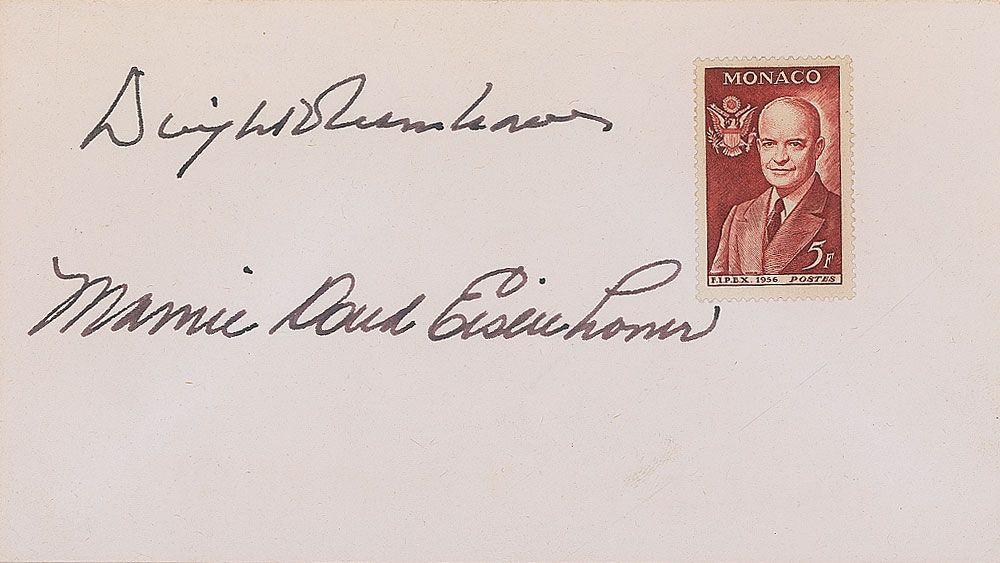 Dwight D Eisenhower
MONACO
Mamie Doud Eisenhower
5F
F.I.P.E.X. 1956 POSTES